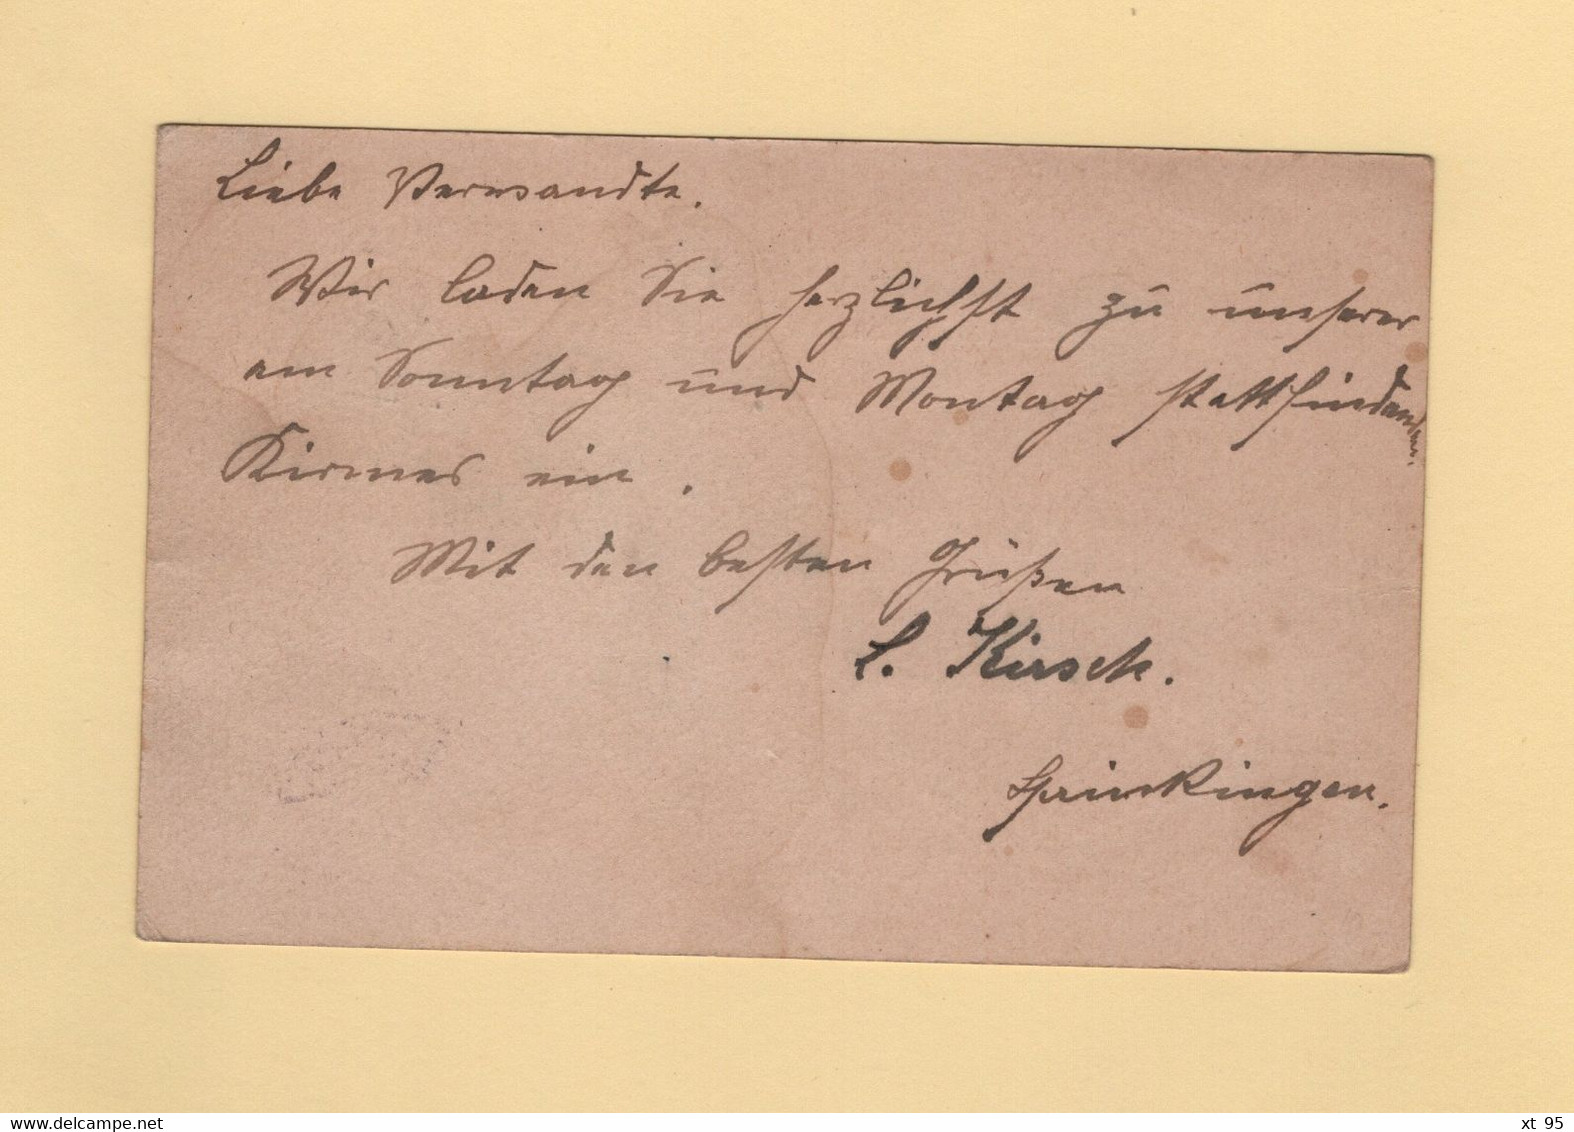 Liebe Verwandte.
Wir laden Sie herzlichst zu unserer
am Sonntag und Montag stattfindenden
Kirmes ein.
Mit den besten Grüßen
L. Kirsch.
delcampe.net
xt_95